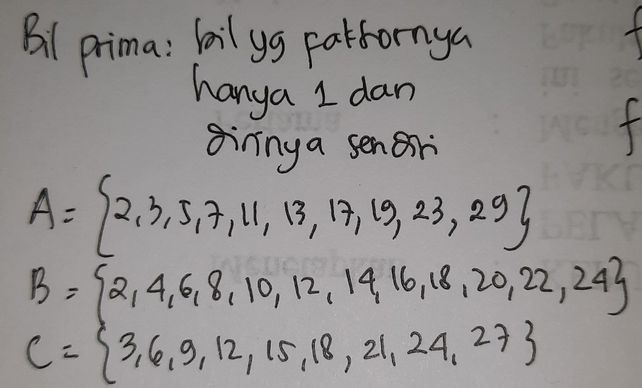 Bil prima: bil yg faktornya
hanya 1 dan
dirinya sendiri
A = {2, 3, 5, 7, 11, 13, 17, 19, 23, 29}
B = {2, 4, 6, 8, 10, 12, 14, 16, 18, 20, 22, 24}
C = {3, 6, 9, 12, 15, 18, 21, 24, 27}